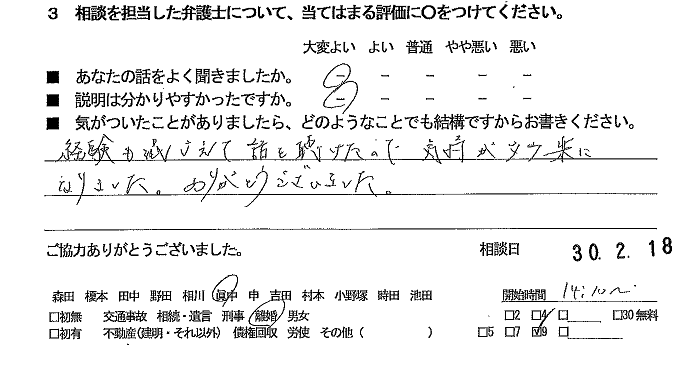 3 相談を担当した弁護士について、当てはまる評価に〇をつけてください。
大変よい よい 普通 やや悪い 悪い
■ あなたの話をよく聞きましたか。 - - - - -
■ 説明は分かりやすかったですか。 - - - - -
■ 気がついたことがありましたら、どのようなことでも結構ですからお書きください。
経験も えて話を聴けたので 気持が 楽に
なりました。ありがとうございました。
ご協力ありがとうございました。 相談日 30.2.18
森田 榎本 田中 野田 相川 眞中 申 吉田 村本 小野塚 時田 池田 開始時間 14:10〜
□初無 交通事故 相続・遺言 刑事 離婚 男女 □2 □4 □ □30 無料
□初有 不動産(建明・それ以外) 債権回収 労使 その他( ) □5 □7 ☑9 □